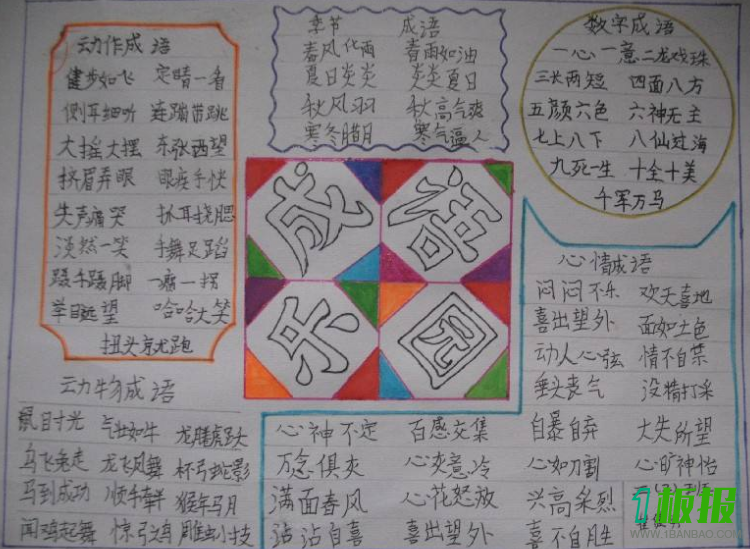 动作成语
健步如飞 定晴一看
侧耳细听 连蹦带跳
大摇大摆 东张西望
挤眉弄眼 眼疾手快
失声痛哭 抓耳挠腮
淡然一笑 手舞足蹈
蹑手蹑脚 一瘸一拐
举目远望 哈哈大笑
扭头就跑
季节 成语
春风化雨 春雨如油
夏日炎炎 炎炎夏日
秋风羽 秋高气爽
寒冬腊月 寒气逼人
数字成语
一心一意 二龙戏珠
三长两短 四面八方
五颜六色 六神无主
七上八下 八仙过海
九死一生 十全十美
千军万马
成语
乐园
动物成语
鼠目寸光 气壮如牛 龙腾虎跃
乌飞兔走 龙飞凤舞 杯弓蛇影
马到成功 顺手牵羊 猴年马月
闻鸡起舞 惊弓之鸟 雕虫小技
心情成语
闷闷不乐 欢天喜地
喜出望外 面如土色
动人心弦 情不自禁
垂头丧气 没精打采
心神不定 百感交集 自暴自弃 大失所望
万念俱灰 心灰意冷 心如刀割 心旷神怡
满面春风 心花怒放 兴高采烈
沾沾自喜 喜出望外 喜不自胜
1板报
WWW.1BANBAO.COM